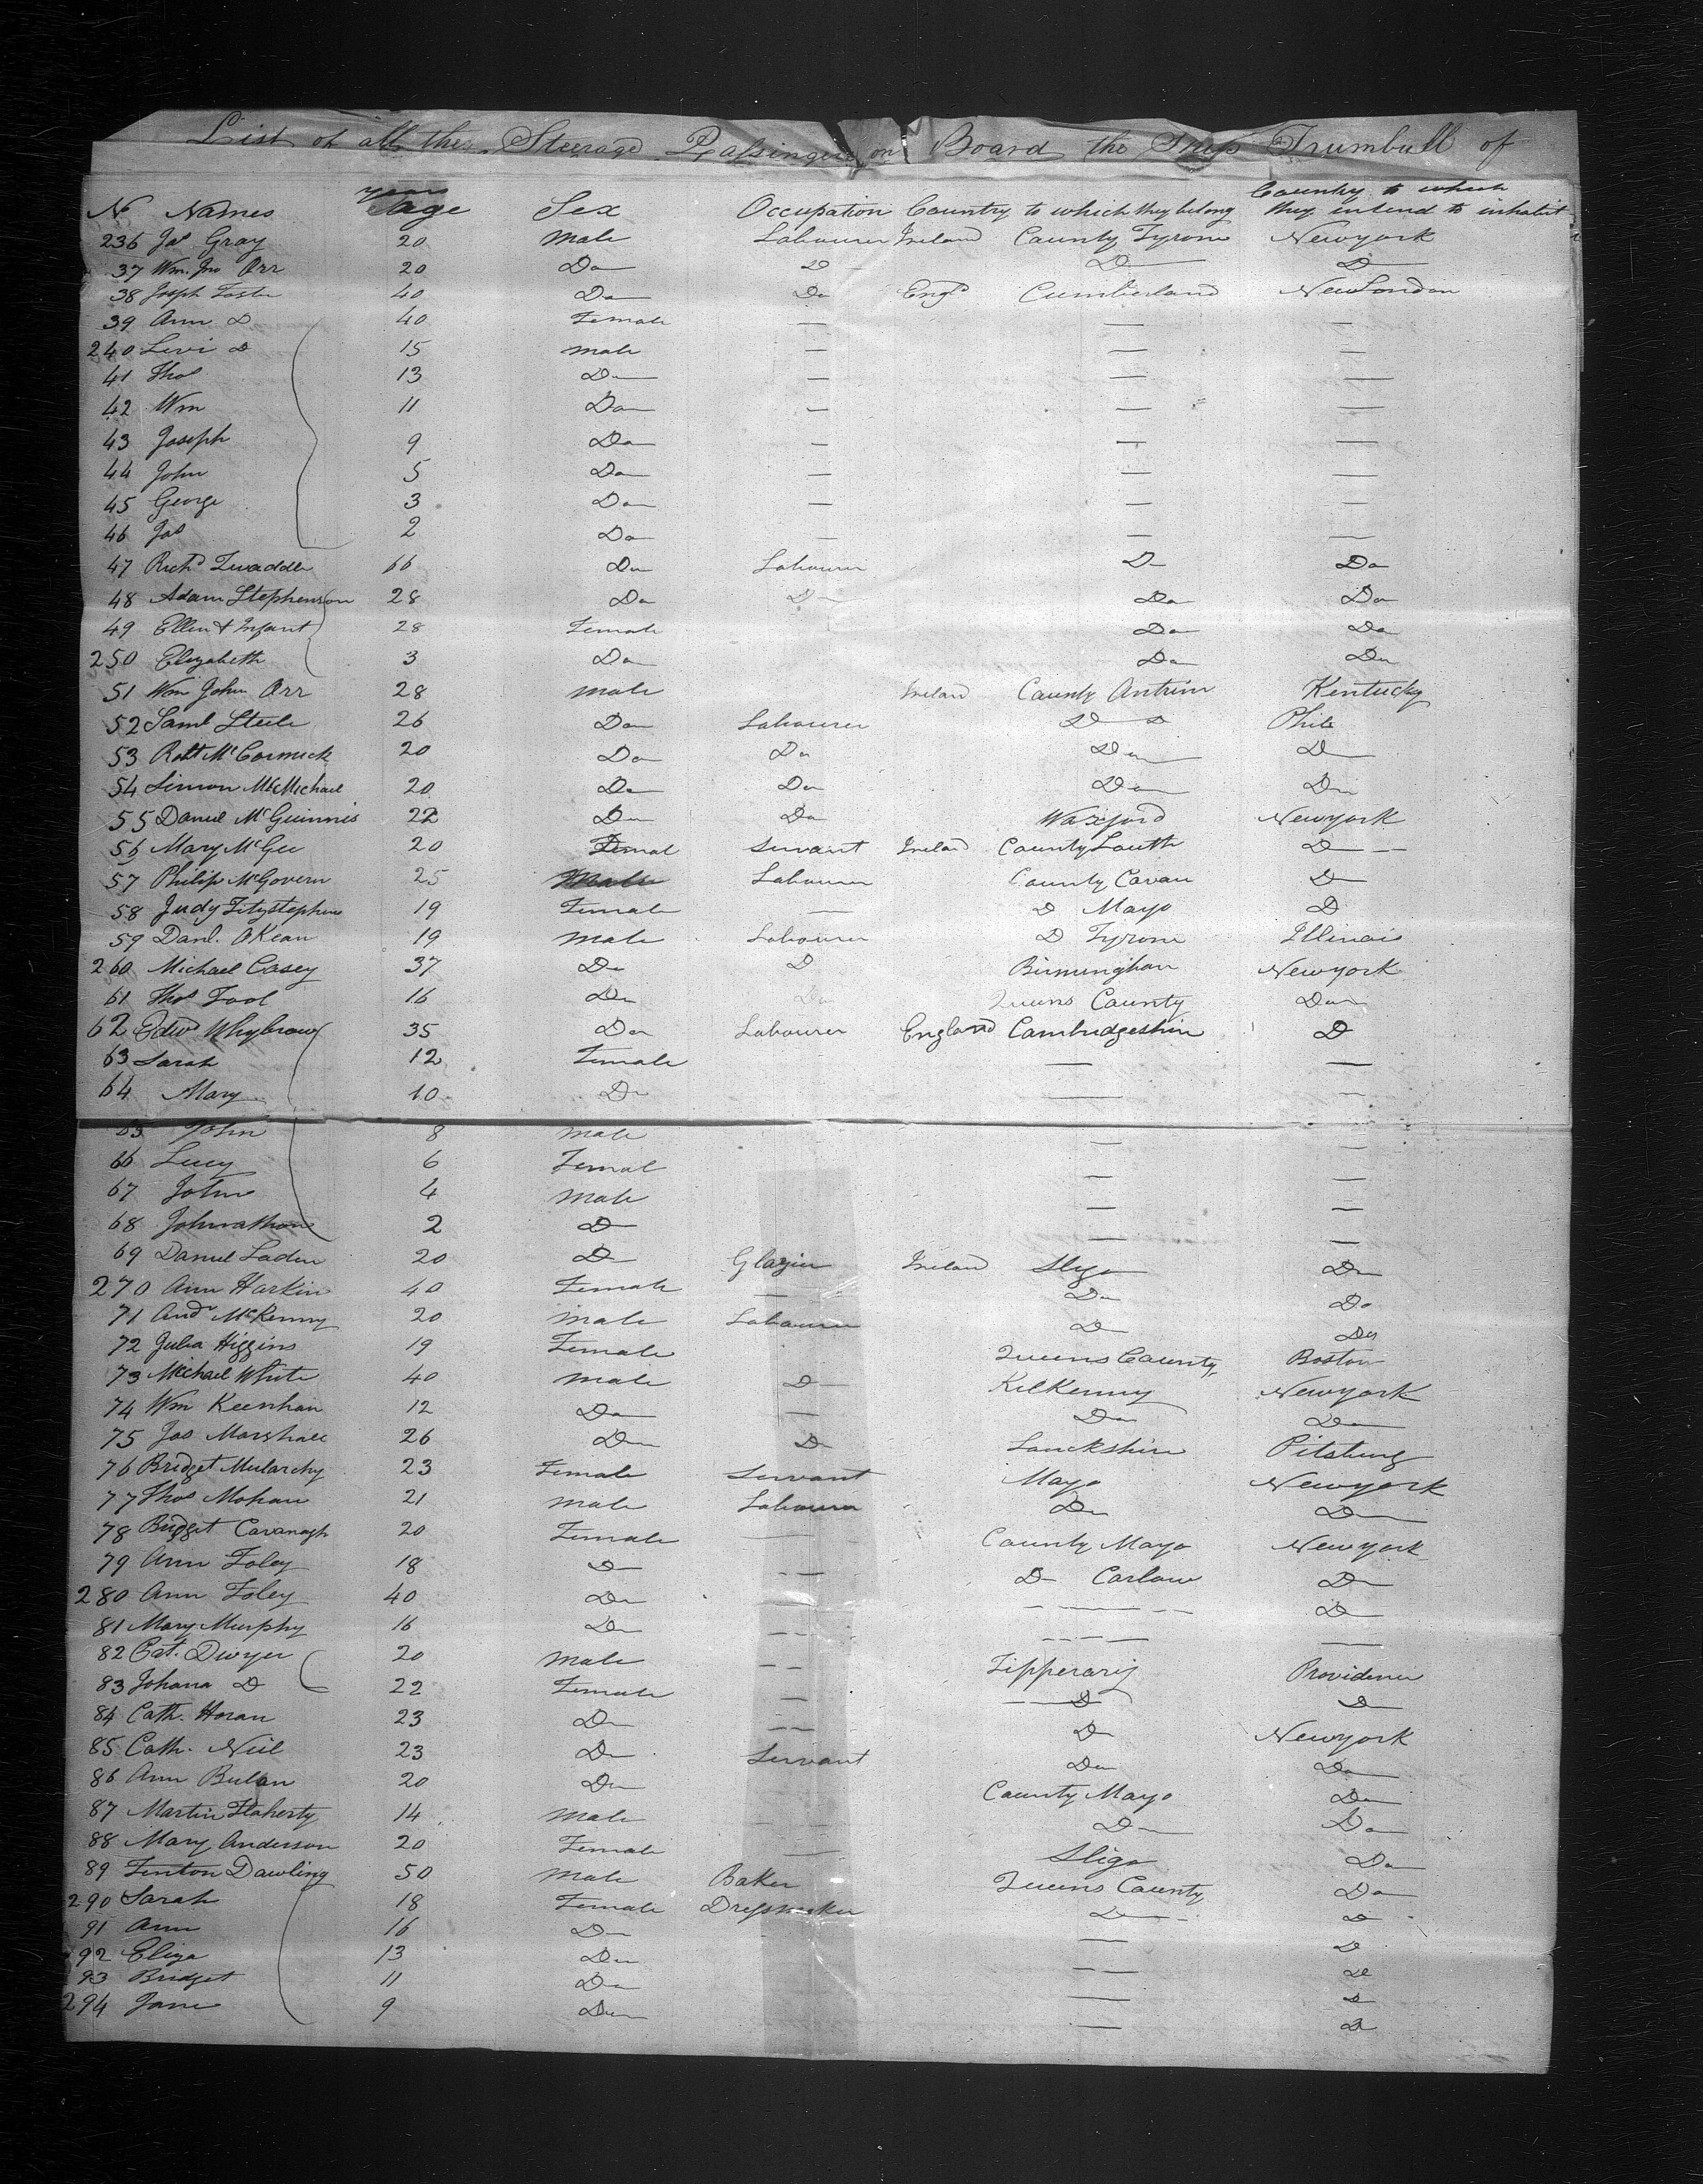 List of all the Steerage Passingers on Board the Ship Trumbull of
years Country to which
No Names age Sex Occupation Country to which they belong they intend to inhabit
236 Jas Gray 20 Male Labourer Ireland County Tyrone Newyork
37 Wm. Jno Orr 20 Do D D D
38 Joseph Foster 40 Do Do Engd Cumberland New London
39 Ann D 40 Female — — —
240 Levi D 15 male — — —
41 Thos 13 Do — — —
42 Wm 11 Do — — —
43 Joseph 9 Do — — —
44 John 5 Do — — —
45 George 3 Do — — —
46 Jas 2 Do — — —
47 Richd Twaddle 66 Do Labourer D Do
48 Adam Stephenson 28 Do Do Do Do
49 Ellen & Infant 28 Female Do Do
250 Elizabeth 3 Do Do Do
51 Wm John Orr 28 male Ireland County Antrim Kentucky
52 Saml Steele 26 Do Labourer D D Phile
53 Robt McCormick 20 Do Do Do D
54 Simon McMichael 20 Do Do Do Do
55 Daniel McGuinnis 22 Do Do Waxford Newyork
56 Mary McGee 20 Femal Servant Ireland County Louth D — —
57 Philip McGovern 25 Male Labourer County Cavan D
58 Judy Fitzstephens 19 Female — D Mayo D
59 Danl. OKean 19 male Labourer D Tyrone Illinois
260 Michael Casey 37 Do D Birmingham Newyork
61 Thos Tool 16 Do Do Queens County Do
62 Edwd Whybrow 35 Do Labourer England Cambridgeshire D
63 Sarah 12 Female — —
64 Mary 10 Do — —
65 John 8 male — —
66 Lucy 6 Femal — —
67 John 4 male — —
68 Johnathan 2 D — —
69 Daniel Laden 20 D Glazier Ireland Sligo Do
270 Ann Harkin 40 Female — Do Do
71 Andw McKenny 20 male Labourer D Do
72 Julia Higgins 19 Female Queens County Boston
73 Michael White 40 male D Kilkenny Newyork
74 Wm Keenhan 12 Do — Do Do
75 Jas Marshall 26 Do D Lanckshire Pitsburg
76 Bridget Mularchy 23 Female Servant Mayo Newyork
77 Thos Mohan 21 male Labourer Do D
78 Bridget Cavanagh 20 Female — County Mayo Newyork
79 Ann Foley 18 D — — D Carlow D
280 Ann Foley 40 Do — — — — — D
81 Mary Murphy 16 Do — — — — — —
82 Cat. Dwyer 20 male — — Tipperary Providence
83 Johana D 22 Female — D D
84 Cath. Horan 23 Do — — D Newyork
85 Cath. Neil 23 Do Servant Do Do
86 Ann Bulan 20 Do County Mayo Do
87 Martin Flaherty 14 male — — Do Do
88 Mary Anderson 20 Female — Sligo Do
89 Finton Dawling 50 male Baker Queens County Do
290 Sarah 18 Female Dressmaker D D
91 Ann 16 Do — D
92 Eliza 13 Do — — D
93 Bridget 11 Do — D
294 Jane 9 Do — D